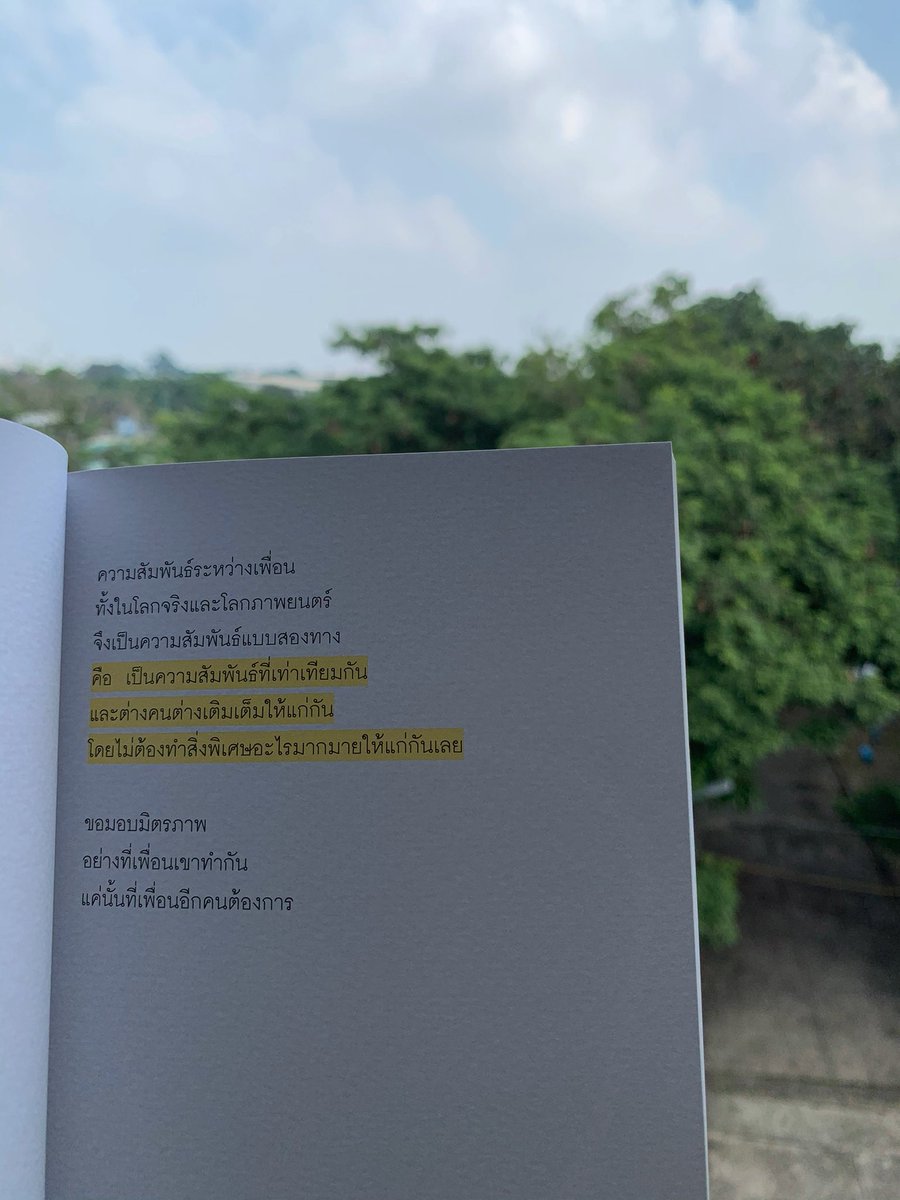 ความสัมพันธ์ระหว่างเพื่อน
ทั้งในโลกจริงและโลกภาพยนตร์
จึงเป็นความสัมพันธ์แบบสองทาง
คือ เป็นความสัมพันธ์ที่เท่าเทียมกัน
และต่างคนต่างเติมเต็มให้แก่กัน
โดยไม่ต้องทำสิ่งพิเศษอะไรมากมายให้แก่กันเลย
ขอมอบมิตรภาพ
อย่างที่เพื่อนเขาทำกัน
แค่นั้นที่เพื่อนอีกคนต้องการ